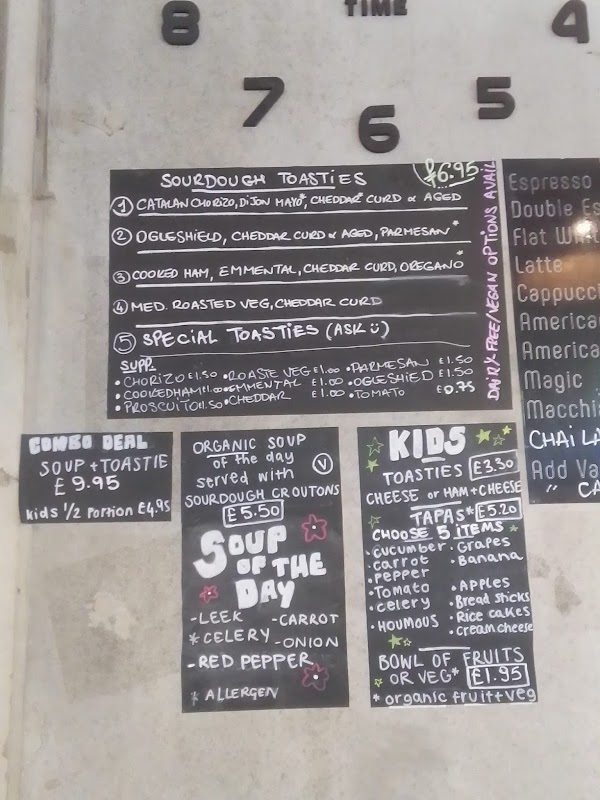 8
TIME
4
7
5
6
SOURDOUGH TOASTIES
£6.95
① CATALAN CHORIZO, DIJON MAYO*, CHEDDAR* CURD & AGED
② OGLESHIELD, CHEDDAR CURD & AGED, PARMESAN*
③ COOKED HAM, EMMENTAL, CHEDDAR CURD, OREGANO*
④ MED. ROASTED VEG, CHEDDAR CURD
⑤ SPECIAL TOASTIES (ASK ü)
SUPP.
• CHORIZO £1.50 • ROASTE VEG £1.00 • PARMESAN £1.50
• COOKED HAM £1.00 • EMMENTAL £1.00 • OGLESHIED £1.50
• PROSCUITO £1.50 • CHEDDAR £1.00 • TOMATO £0.75
DAIRY-FREE/VEGAN OPTIONS AVAIL
Espresso
Double Es
Flat Whit
Latte
Cappucci
America
America
Magic
Macchia
CHAI LA
Add Va
" CA
COMBO DEAL
SOUP + TOASTIE
£9.95
Kids 1/2 Portion £4.95
ORGANIC SOUP
of the day
served with
V
SOURDOUGH CROUTONS
£5.50
SOUP
OF THE
DAY
- LEEK - CARROT
* CELERY - ONION
- RED PEPPER
* ALLERGEN
KIDS
TOASTIES £3.30
CHEESE or HAM + CHEESE
TAPAS* £5.20
CHOOSE 5 ITEMS
• cucumber • Grapes
• carrot • Banana
• PEPPER
• Tomato • APPLES
• celery • Bread sticks
• HOUMOUS • Rice cakes
• cream cheese
BOWL OF FRUITS
OR VEG* £1.95
* organic fruit + veg